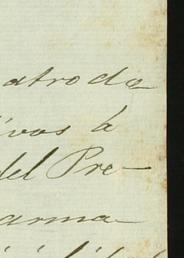 atro da
ivos à
del Pre-
arma